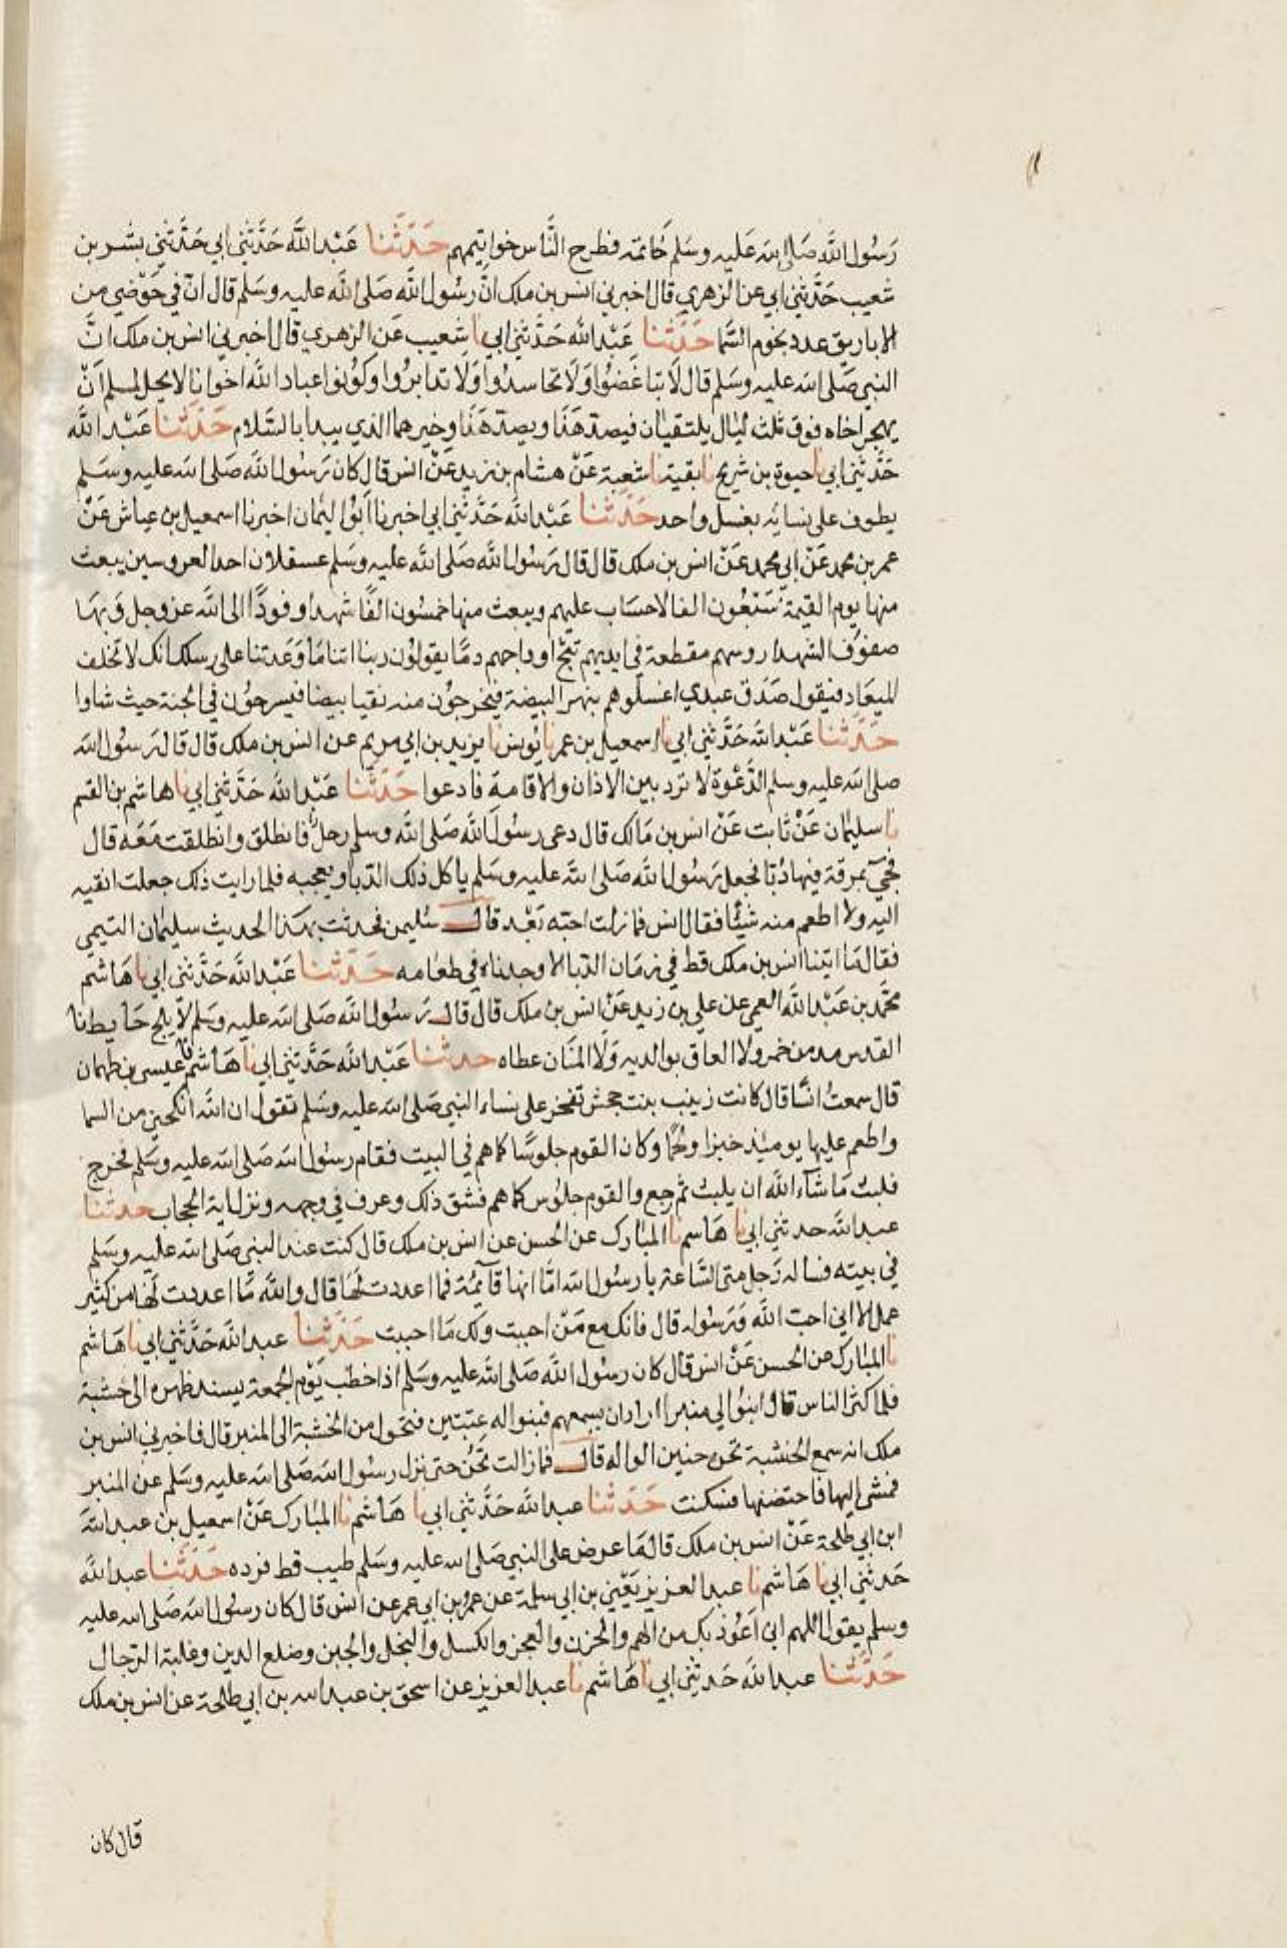 رسول الله صلى الله عليه وسلم خاتمه فطرح الناس خواتيمهم حدثنا عبد الله حدثني ابي حدثني بشر بن
شعيب حدثني ابي عن الزهري قال اخبرني انس بن ملك ان رسول الله صلى الله عليه وسلم قال ان في حوضي من
الاباريق عدد نجوم السما حدثنا عبد الله حدثني ابي نا شعيب عن الزهري قال اخبرني انس بن ملك ان
النبي صلى الله عليه وسلم قال لا تباغضوا ولا تحاسدوا ولا تدابروا وكونوا عباد الله اخوانا لا يحل لمسلم ان
يهجر اخاه فوق ثلث ليال يلتقيان فيصد هذا ويصد هذا وخيرهما الذي يبدا بالسلام حدثنا عبد الله
حدثني ابي نا حيوة بن شريح نا بقية نا شعبة عن هشام بن زيد عن انس قال كان رسول الله صلى الله عليه وسلم
يطوف على نسائه بغسل واحد حدثنا عبد الله حدثني ابي اخبرنا ابو اليمان اخبرنا اسمعيل بن عياش عن
عمر بن محمد عن ابي محمد عن انس بن ملك قال قال رسول الله صلى الله عليه وسلم عسقلان احد العروسين يبعث
منها يوم القيمة سبعون الفا لا حساب عليهم ويبعث منها خمسون الفا شهدا وفودا الى الله عز وجل وبها
صفوف الشهدا روسهم مقطعة في ايديهم تثج اوداجهم دما يقولون ربنا اتنا ما وعدتنا على رسلك انك لا تخلف
الميعاد فيقول صدق عبدي اغسلوهم بنهر البيضة فيخرجون منه نقيا بيضا فيسرحون في الجنة حيث شاوا
حدثنا عبد الله حدثني ابي نا اسمعيل بن عمر نا يونس نا يزيد بن ابي مريم عن انس بن ملك قال قال رسول الله
صلى الله عليه وسلم الدعوة لا ترد بين الاذان والاقامة فادعوا حدثنا عبد الله حدثني ابي نا هاشم بن القسم
نا سليمان عن ثابت عن انس بن مالك قال دعى رسول الله صلى الله وسلم رجل فانطلق وانطلقت معه قال
فجئ بمرقة فيها دبا فجعل رسول الله صلى الله عليه وسلم ياكل ذلك الدبا ويعجبه فلما رايت ذلك جعلت القيه
اليه ولا اطعم منه شيئا فقال انس فما زلت احبه بعد قال سليمن فحدثت بهذا الحديث سليمان التيمي
فقال ما اتينا انس بن ملك قط في زمان الدبا الا وجدناه في طعامه حدثنا عبد الله حدثني ابي نا هاشم
محمد بن عبد الله العمي عن علي بن زيد عن انس بن ملك قال قال رسول الله صلى الله عليه وسلم لا يلج حايط نا
القدس مدمن خمر ولا العاق بوالديه ولا المنان عطاه حدثنا عبد الله حدثني ابي نا هاشم نا عيسى بن طهمان
قال سمعت انسا قال كانت زينب بنت جحش تفخر على نساء النبي صلى الله عليه وسلم تقول ان الله انكحني من السما
واطعم عليها يومئذ خبزا ولحما وكان القوم جلوسا كما هم في البيت فقام رسول الله صلى الله عليه وسلم فخرج
فلبث ما شاء الله ان يلبث ثم رجع والقوم جلوس كما هم فشق ذلك وعرف في وجهه ونزل اية الحجاب حدثنا
عبد الله حدثني ابي نا هاسم نا المبارك عن الحسن عن انس بن ملك قال كنت عند النبي صلى الله عليه وسلم
في بيته فساله رجل متى الساعة يا رسول الله اما انها قائمة فما اعددت لها قال والله ما اعددت لها من كثير
عمل الا اني احب الله ورسوله قال فانك مع من احببت ولك ما احببت حدثنا عبد الله حدثني ابي نا هاشم
نا المبارك عن الحسن عن انس قال كان رسول الله صلى الله عليه وسلم اذا خطب يوم الجمعة يسند ظهره الى خشبة
فلما كثر الناس قال ابنوا لي منبرا اراد ان يسمعهم فبنوا له عتبتين فتحول من الخشبة الى المنبر قال فاخبرني انس بن
ملك انه سمع الخشبة تحن حنين الواله قال فما زالت تحن حتى نزل رسول الله صلى الله عليه وسلم عن المنبر
فمشى اليها فاحتضنها فسكنت حدثنا عبد الله حدثني ابي نا هاشم نا المبارك عن اسمعيل بن عبد الله
ابن ابي طلحة عن انس بن ملك قال ما عرض على النبي صلى الله عليه وسلم طيب قط فرده حدثنا عبد الله
حدثني ابي نا هاشم نا عبد العزيز يعني بن ابي سلمة عن عمرو بن ابي عمر عن انس قال كان رسول الله صلى الله عليه
وسلم يقول اللهم اني اعوذ بك من الهم والحزن والعجز والكسل والبخل والجبن وضلع الدين وغلبة الرجال
حدثنا عبد الله حدثني ابي نا هاشم نا عبد العزيز عن اسحق بن عبد الله بن ابي طلحة عن انس بن ملك
قال كان